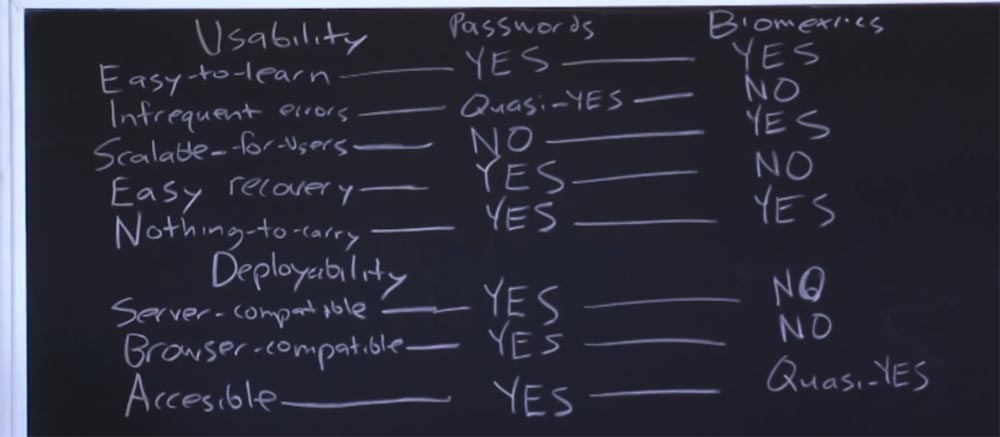 Usability Passwords Biometrics
Easy-to-learn YES YES
Infrequent errors Quasi-YES NO
Scalable-for-users NO YES
Easy recovery YES NO
Nothing-to-carry YES YES
Deployability
Server-compatible YES NO
Browser-compatible YES NO
Accesible YES Quasi-YES